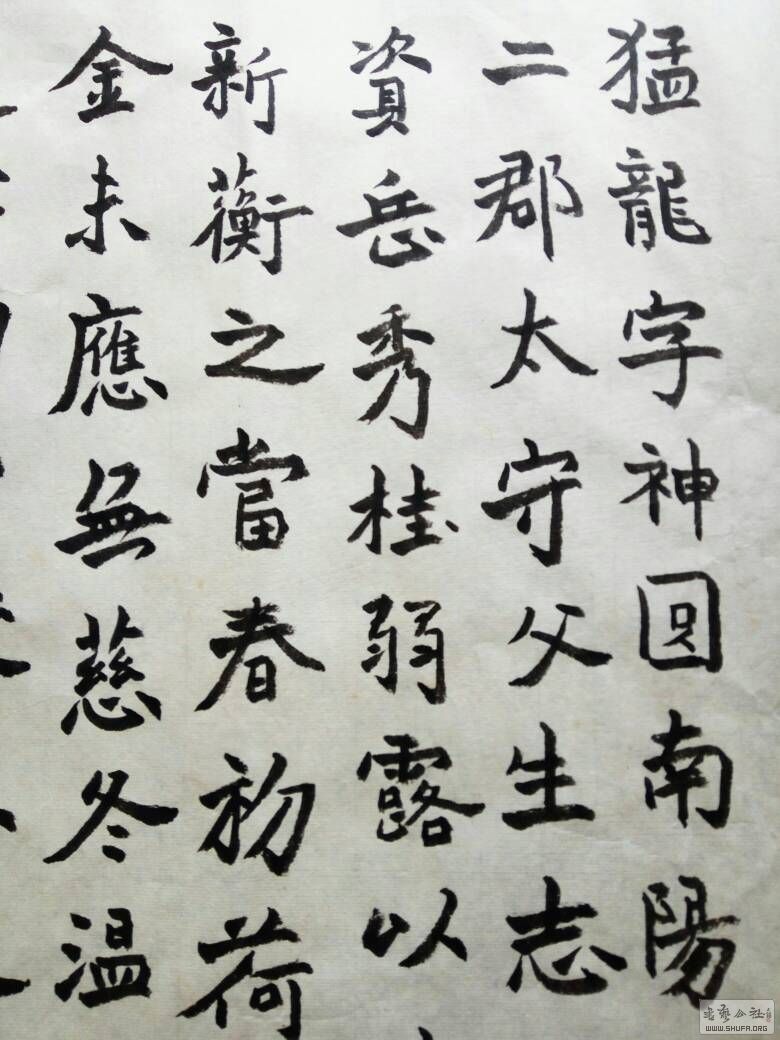 猛龍字神圓南陽
二郡太守父生志
資岳秀桂弱露以
新蘅之當春初荷
金未應無慈冬温
書藝公社
WWW.SHUFA.ORG